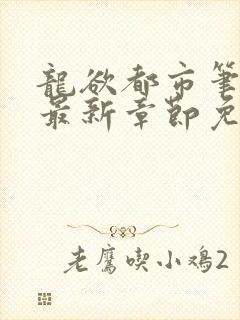 龍欲都市筆
最新章節免
老鷹喫小鳮2